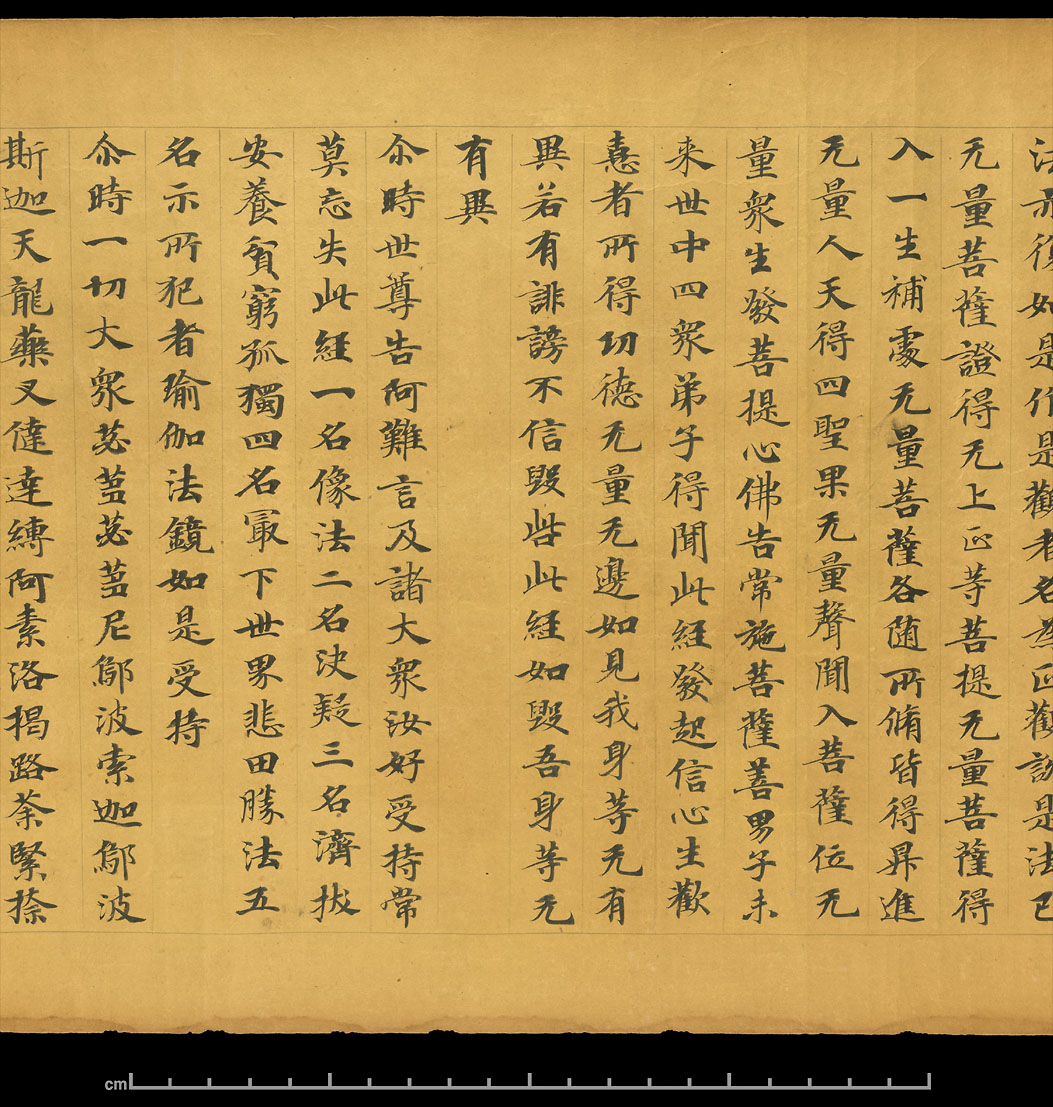 法亦復如是作是觀者名為正觀說是法已
无量菩薩證得无上正等菩提无量菩薩得
入一生補處无量菩薩各随所脩皆得昇進
无量人天得四聖果无量聲聞入菩薩位无
量衆生發菩提心佛告常施菩薩善男子未
来世中四衆弟子得聞此經發起信心生歡
憙者所得功德无量无邊如見我身等无有
異若有誹謗不信毀呰此經如毀吾身等无
有異
尒時世尊告阿難言及諸大衆汝好受持常
莫忘失此經一名像法二名決疑三名濟拔
安養貧窮孤獨四名冣下世界悲田勝法五
名示所犯者瑜伽法鏡如是受持
尒時一切大衆苾蒭苾蒭尼鄔波索迦鄔波
斯迦天龍藥叉健達縛阿素洛揭路荼緊捺
cm